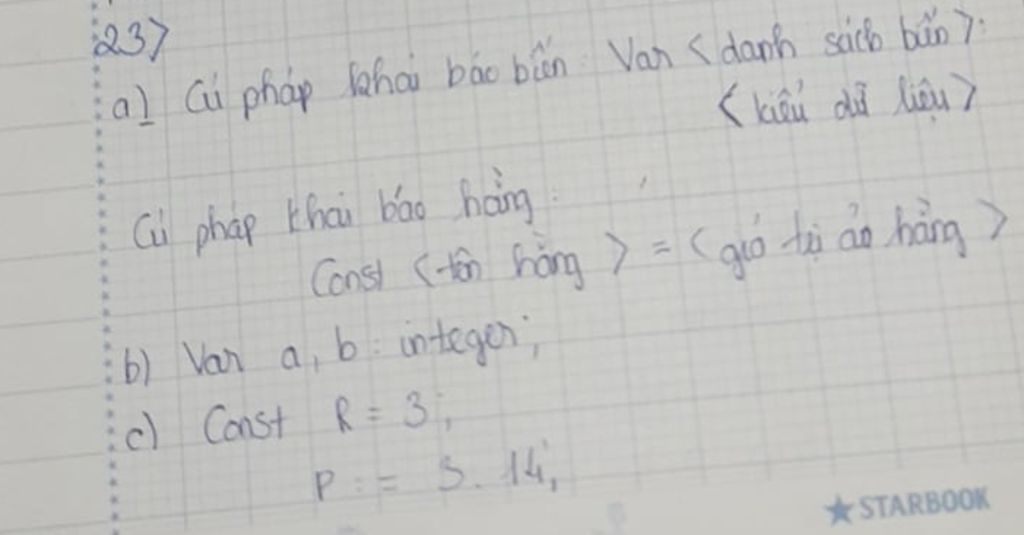 23>
a) Cú pháp khai báo biến: Var <danh sách biến>:
<kiểu dữ liệu>
Cú pháp khai báo hằng:
Const <tên hằng> = <giá trị của hằng>
b) Var a, b : integer;
c) Const R = 3;
P := 3.14;
★STARBOOK